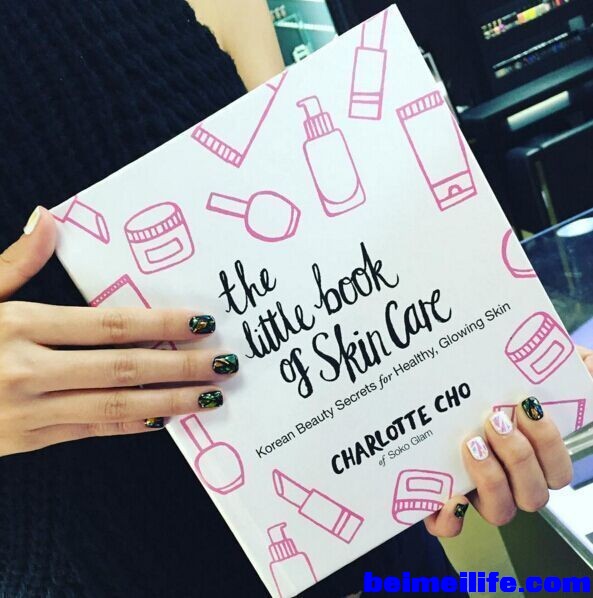 the
little book
of Skin Care
Korean Beauty Secrets for Healthy, Glowing Skin
CHARLOTTE CHO
of Soko Glam
beimeilife.com